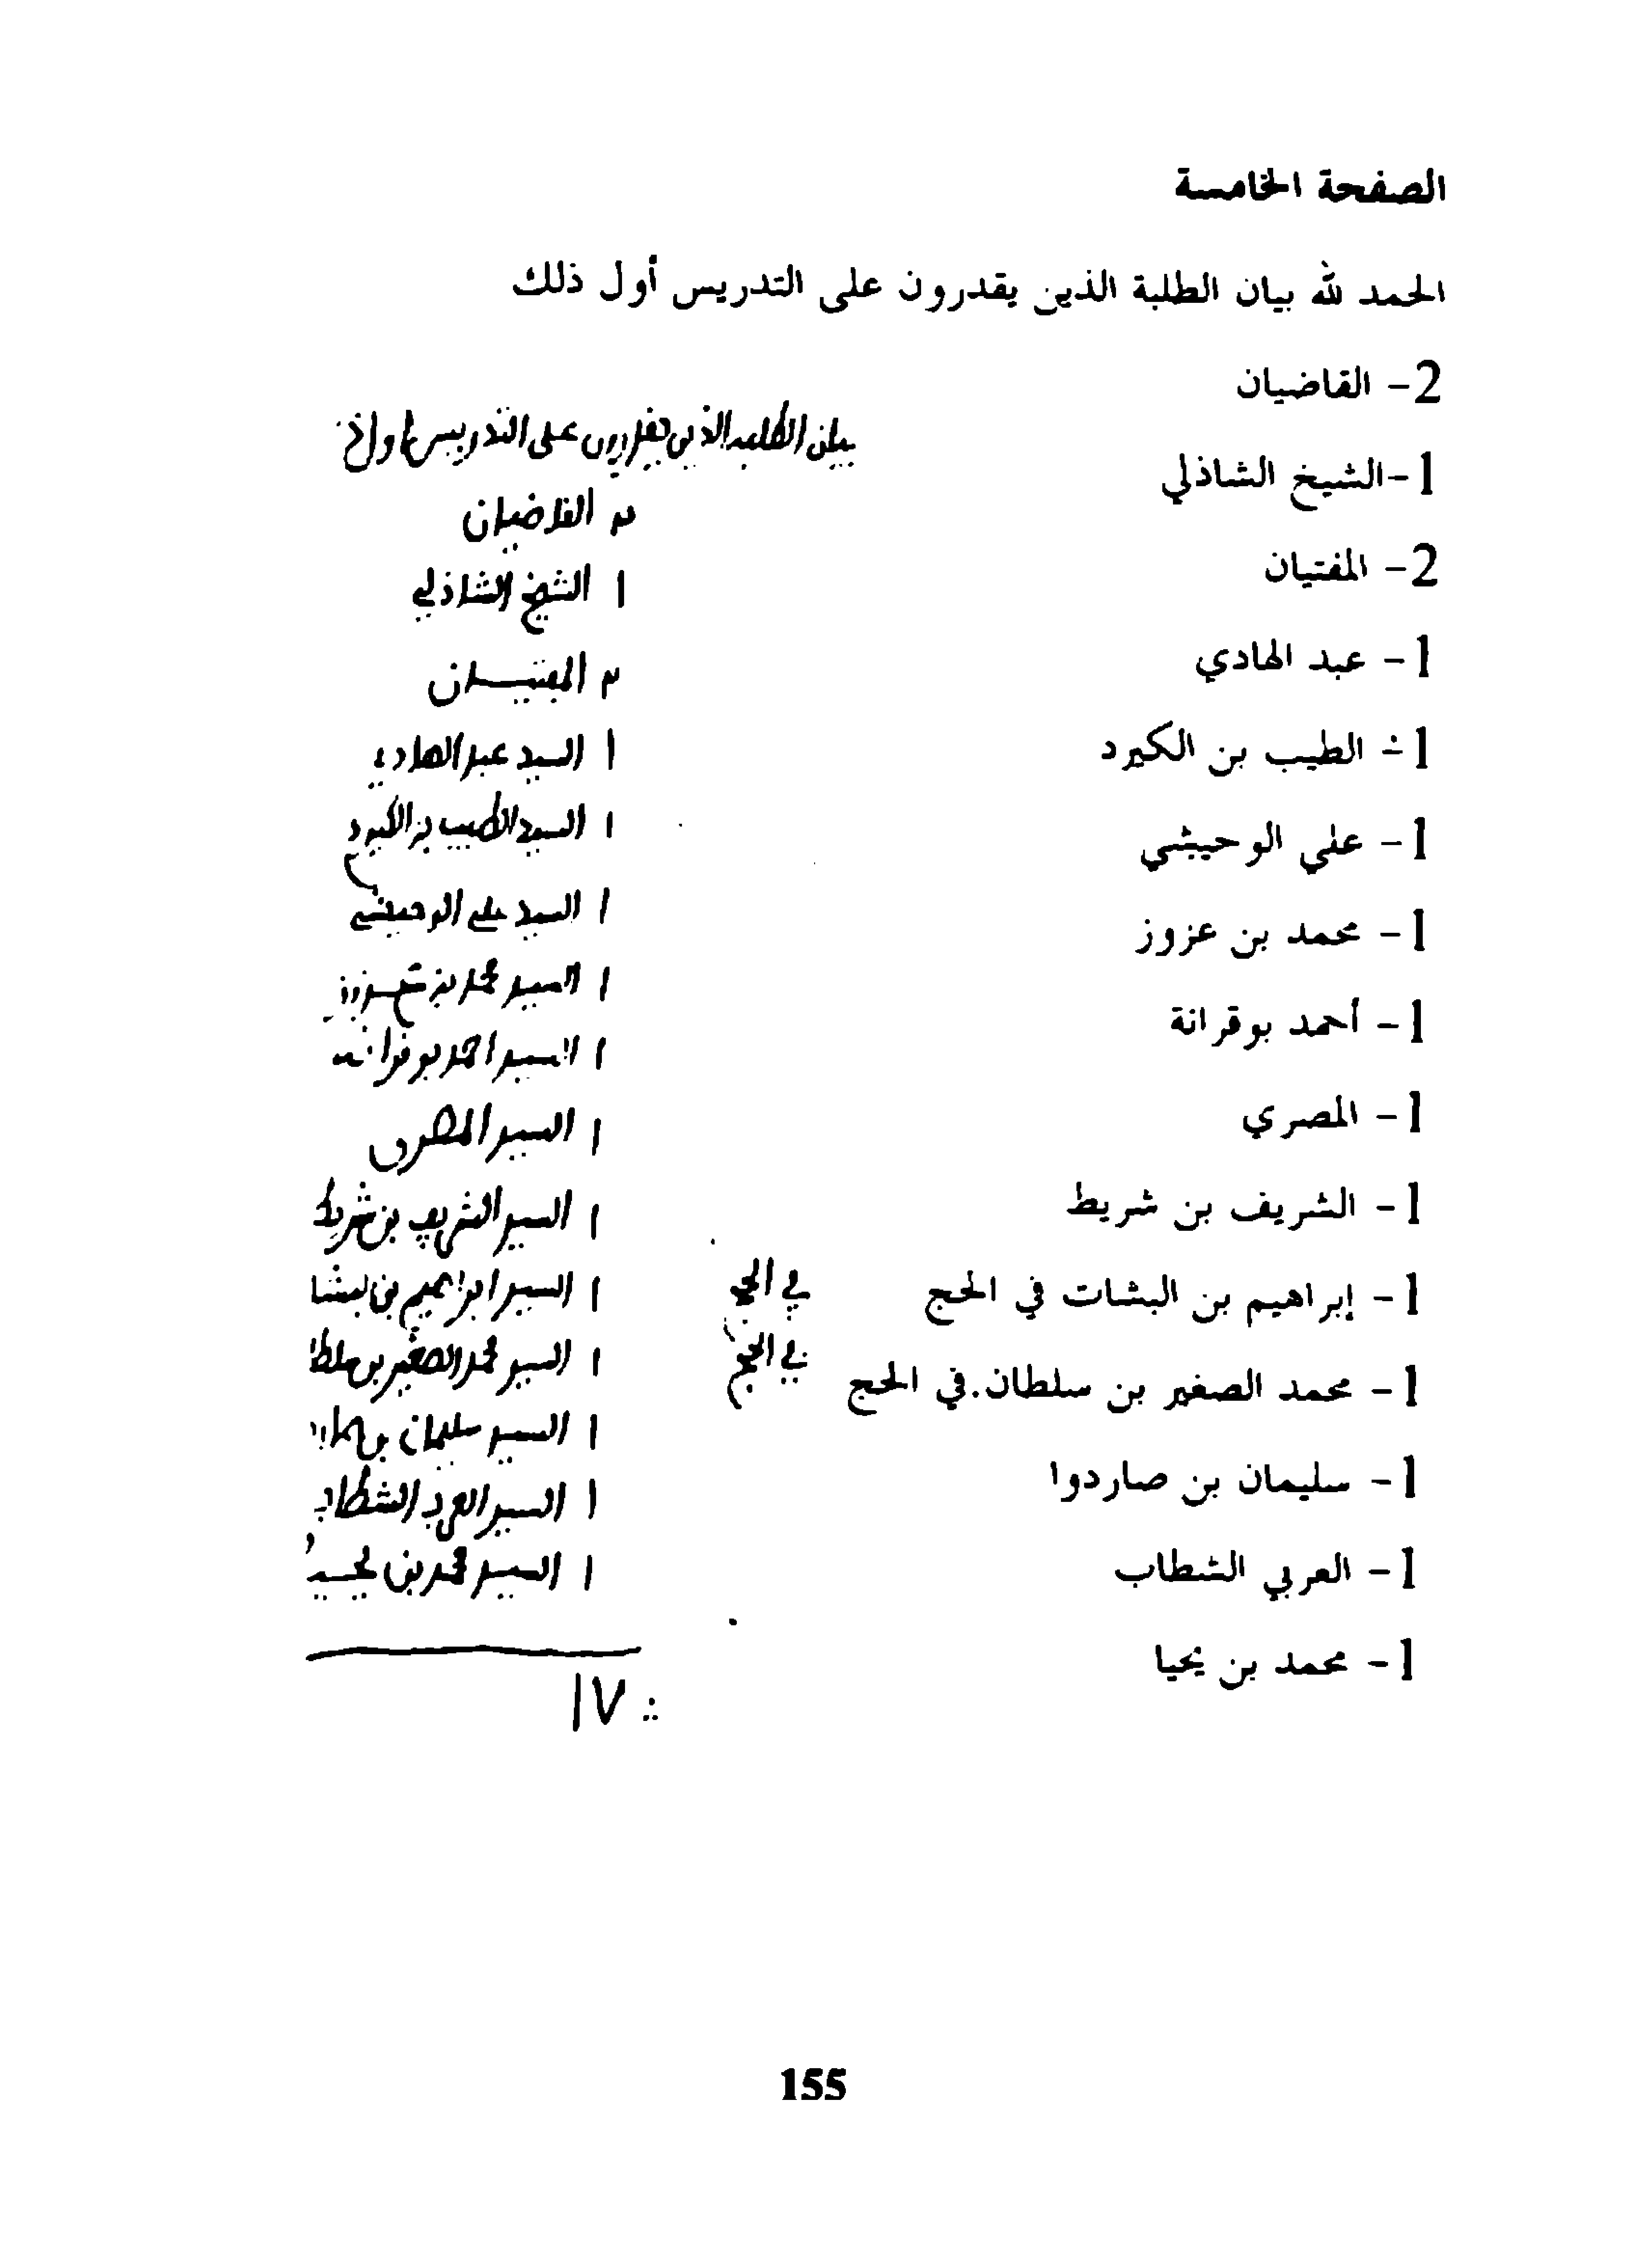 الصفحة الخامسة
الحمد لله بيان الطلبة الذين يقدرون على التدريس أول ذلك
2- القاضيان
1-الشيخ الشاذلي
2- المفتيان
1- عبد الهادي
1- الطيب بن الكيرد
1- علي الوحيشي
1- محمد بن عزوز
1- أحمد بوقرانة
1- المصري
1- الشريف بن شريط
1- إبراهيم بن البشات في الحج
1- محمد الصغير بن سلطان.في الحج
1- سليمان بن صاردوا
1- العربي الشطاب
1- محمد بن يحيا
بيان الطلبه الذين يقدرون على التدريس
٢ القاضيان
١ الشيخ الشاذلي
٢ المفتيــان
١ السيد عبد الهادي
١ السيد الطيب بن الكيرد
١ السيد علي الوحيشي
١ السيد محمد بن عــزوز
١ السيد احمد بو قرانه
١ السيد المصري
١ السيد الشريف بن شريط
١ السيد ابراهيم بن لبشا في الحج
١ السيد محمد الصغير بن سلطا في الحج
١ السيد سليمان بن
١ السيد العربي الشطاب
١ السيد محمد بن يحيــ
١٧
155